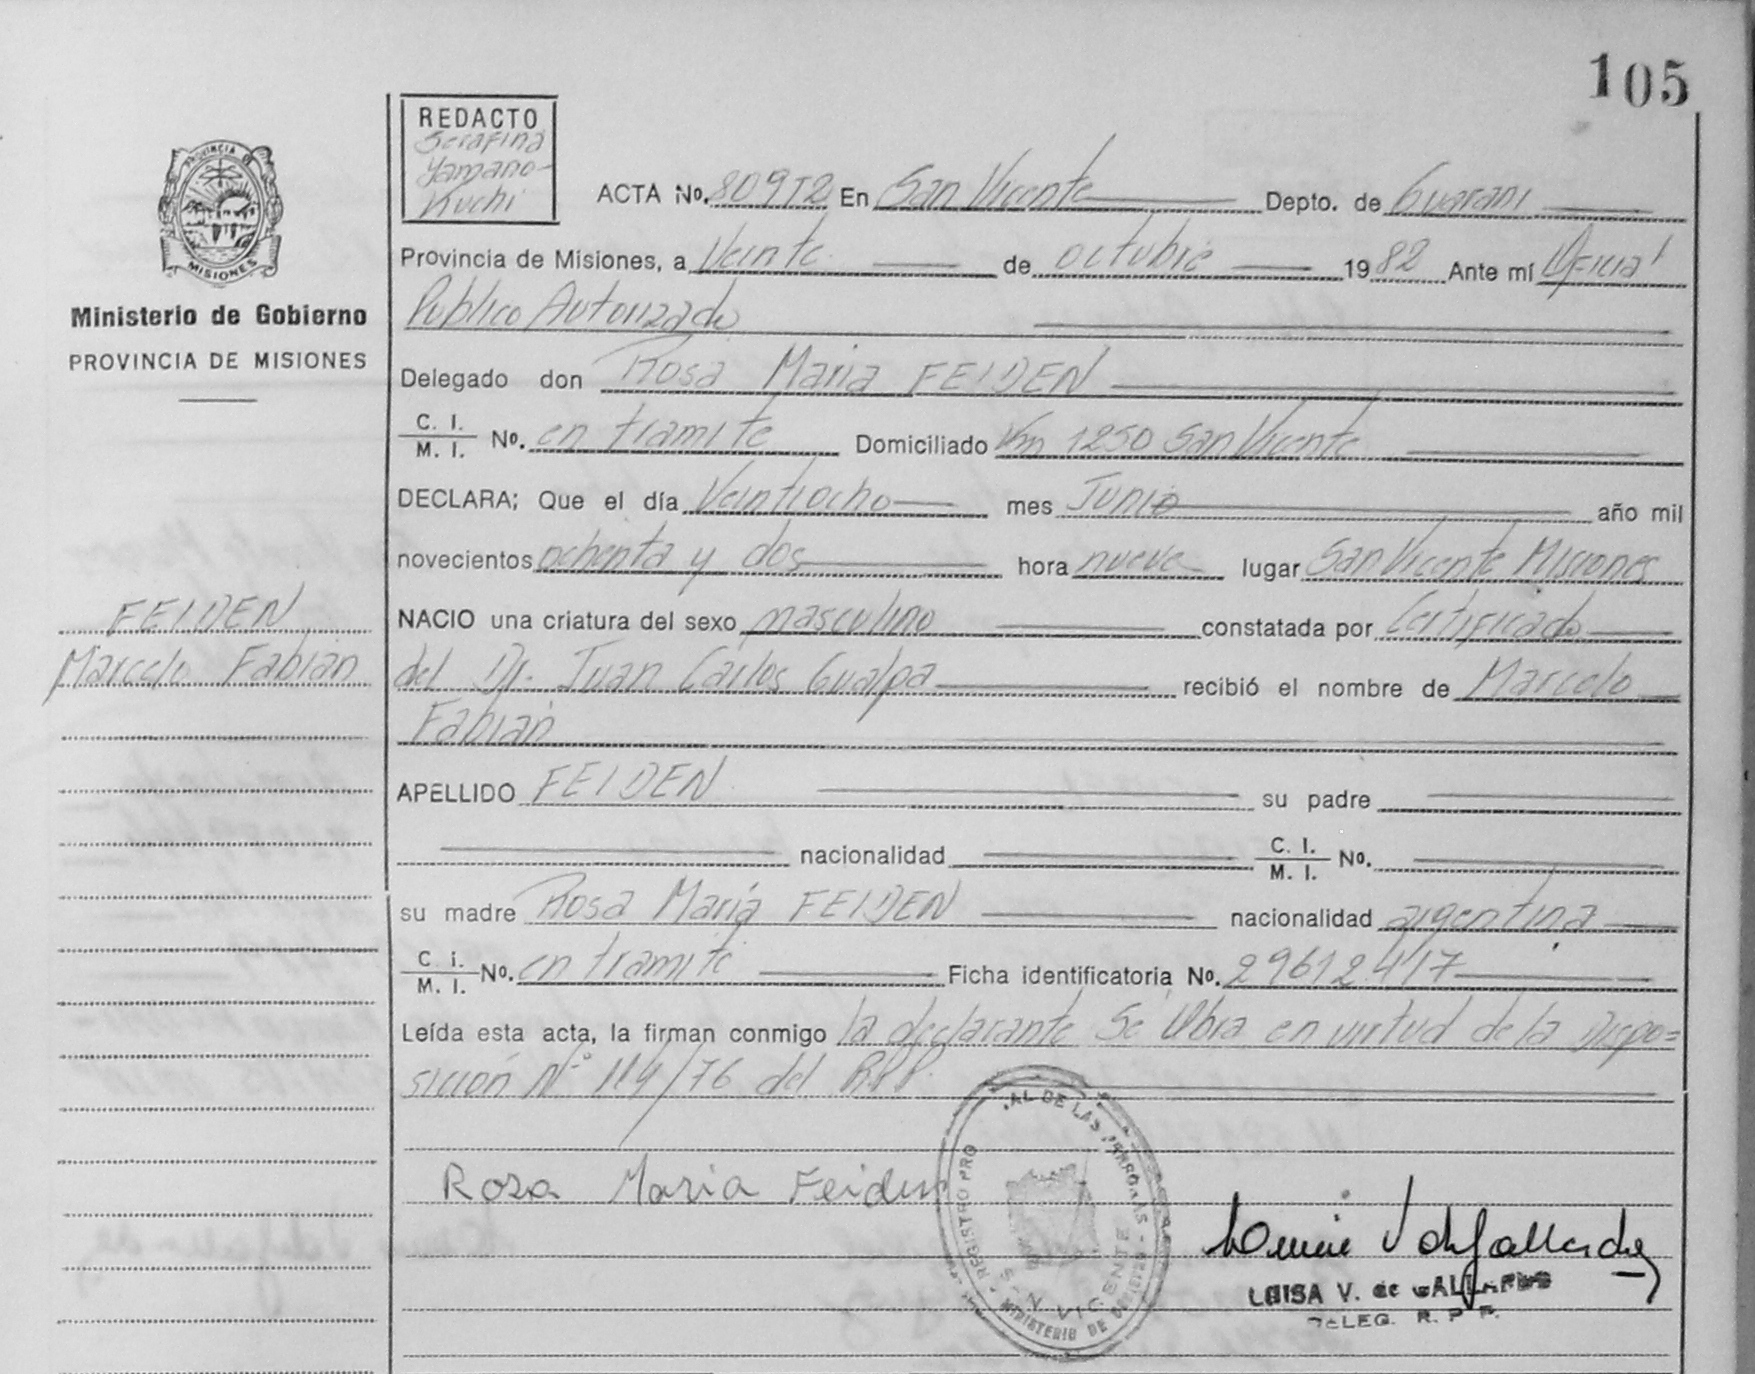 105
REDACTO
Serafina
Yamano-
Kuchi
PROVINCIA DE
MISIONES
Ministerio de Gobierno
PROVINCIA DE MISIONES
ACTA No. 809T2 En San Vicente Depto. de Guarani
Provincia de Misiones, a Veinte de octubre 1982 Ante mí Oficial
Publico Autorizado
Delegado don Rosa Maria FEIDEN
C. I. / M. I. No. en tramite Domiciliado Km 1250 San Vicente
DECLARA; Que el día Veintiocho mes Junio año mil
novecientos ochenta y dos hora nueve lugar San Vicente Misiones
NACIO una criatura del sexo masculino constatada por Certificado
FEIDEN
Marcelo Fabian
del Dr. Juan Carlos Gualpa recibió el nombre de Marcelo
Fabian
APELLIDO FEIDEN su padre
nacionalidad C. I. / M. I. No.
su madre Rosa Maria FEIDEN nacionalidad argentina
C. i. / M. I. No. en tramite Ficha identificatoria No. 29612.417
Leída esta acta, la firman conmigo la declarante Se Obra en virtud de la Dispo=
sición N° 114/76 del R.P.P.
Rosa Maria Feiden
REGISTRO PRO AL DE LAS PERSONAS
MINISTERIO DE
VICENTE
LUISA V. de GALLARDO
DELEG. R. P. P.